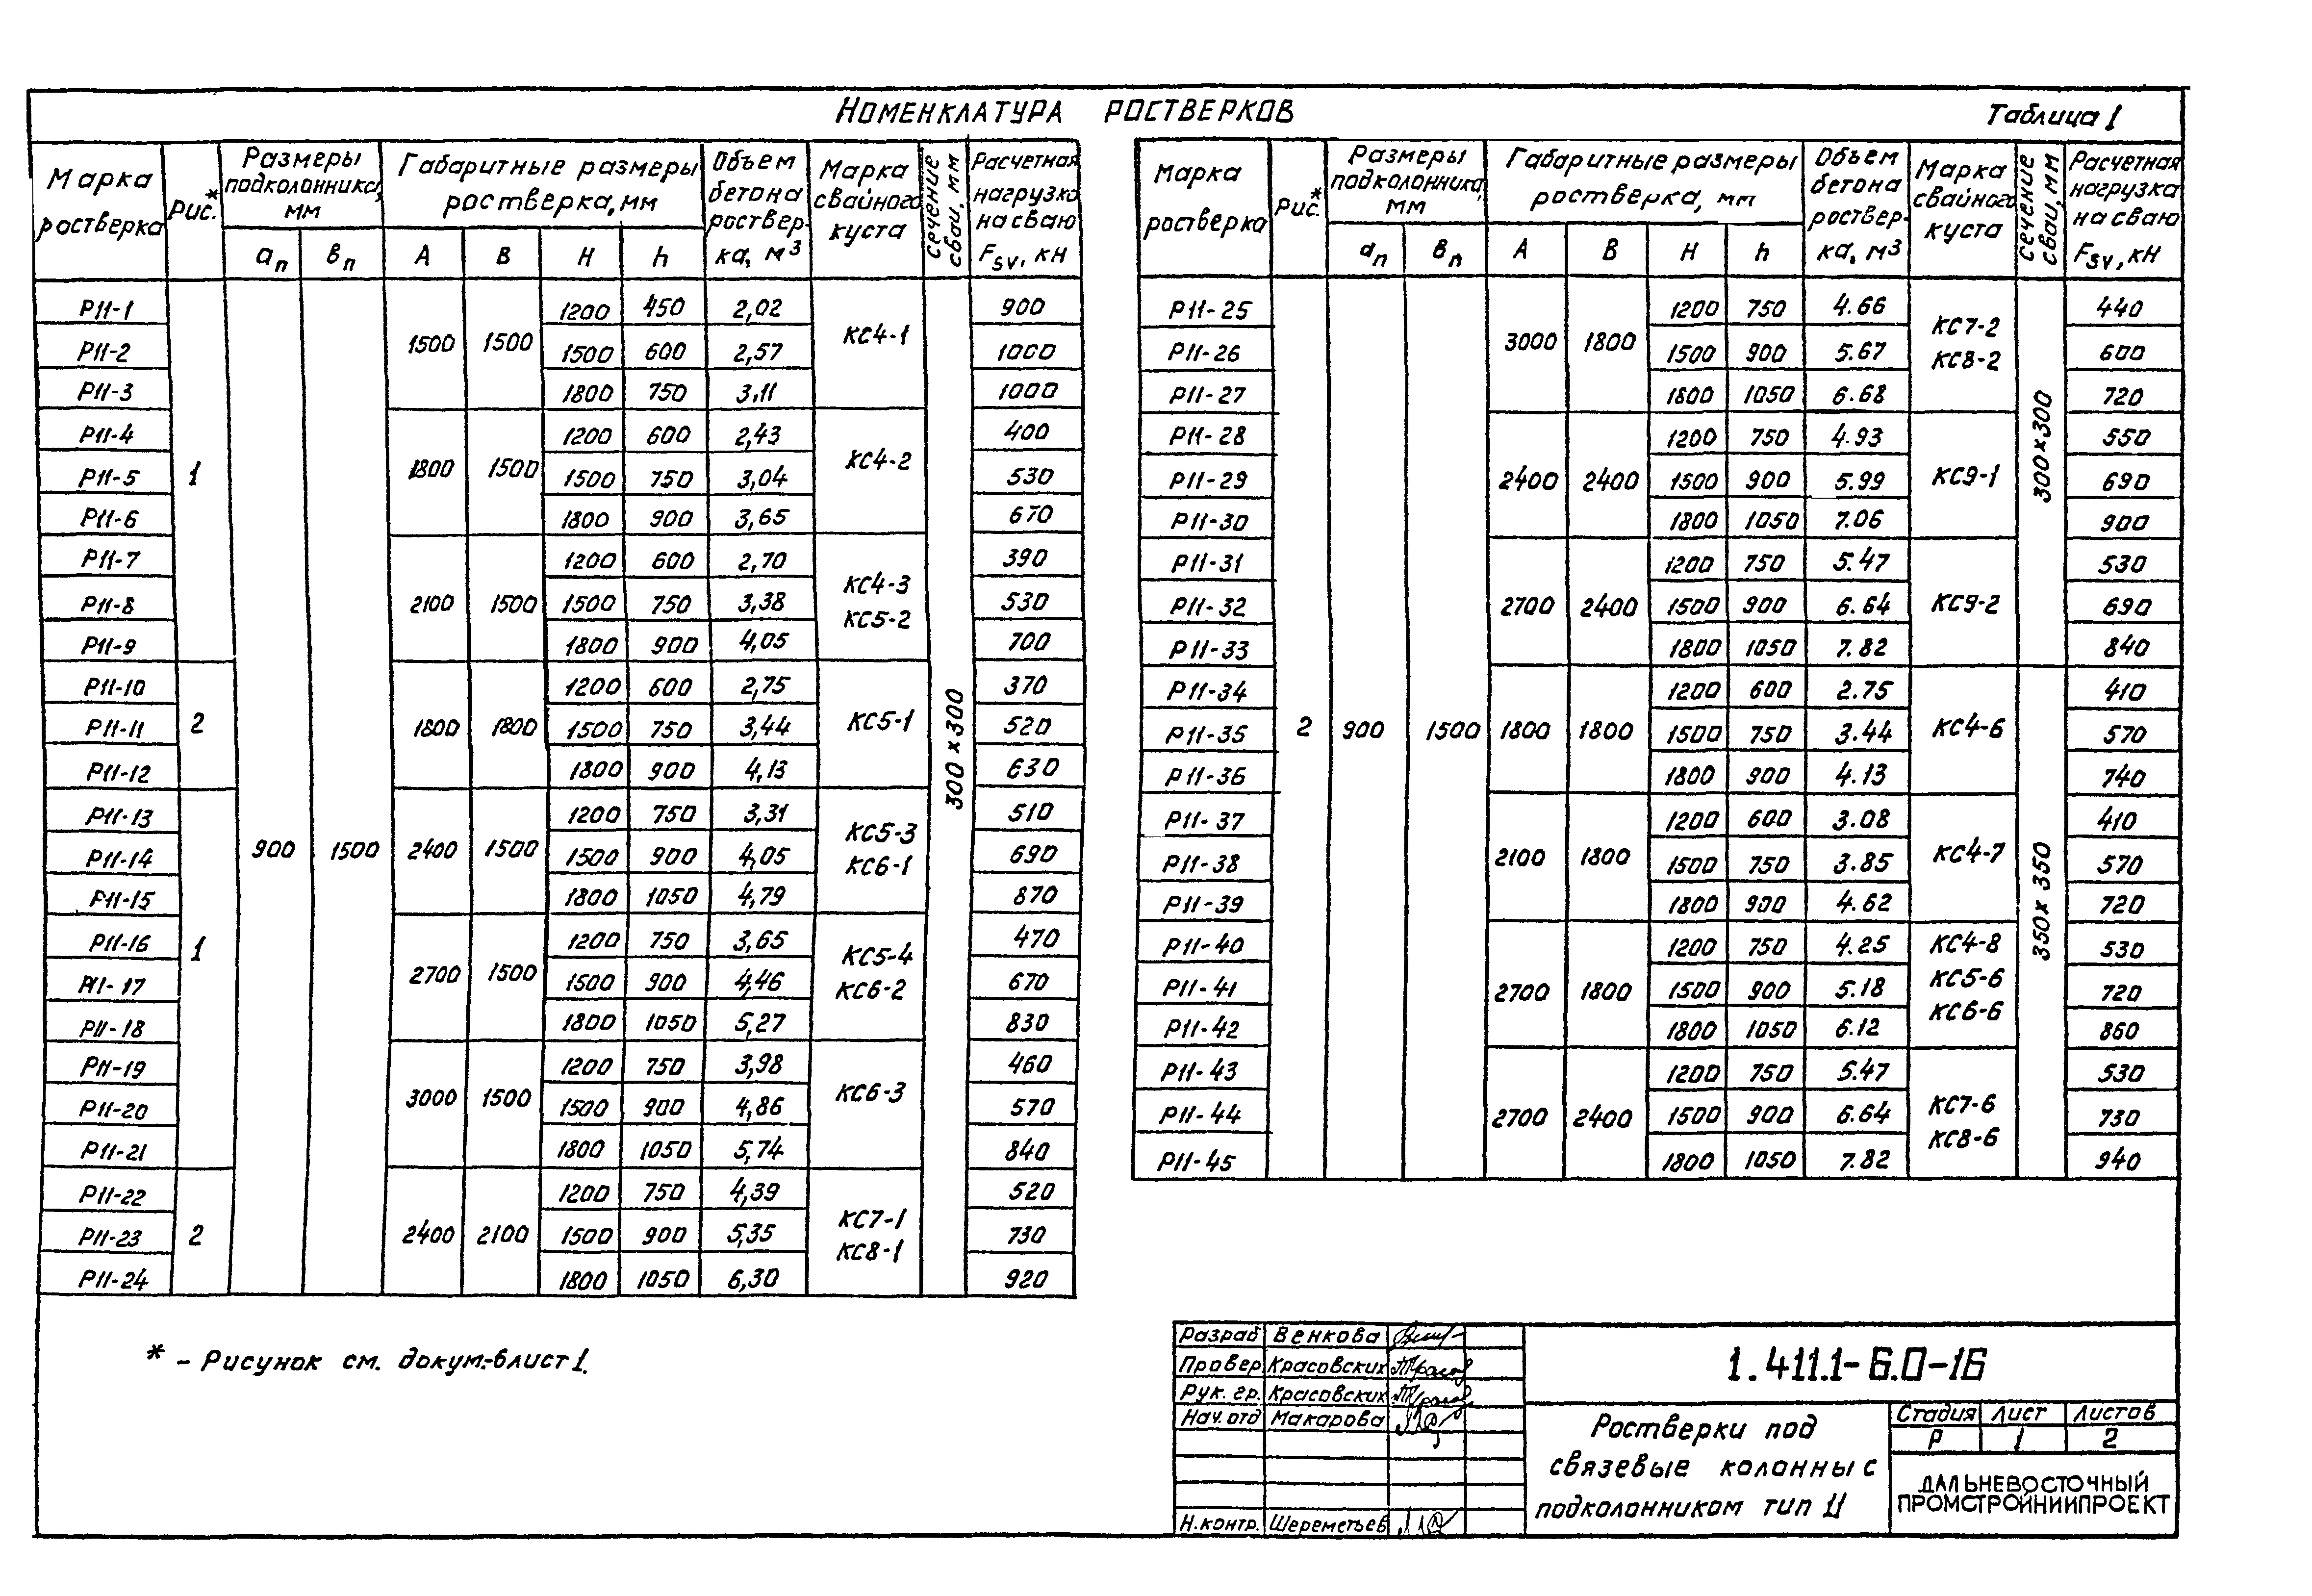 Номенклатура ростверков
Таблица 1
Марка ростверка | Рис.* | Размеры подколонника, мм | Габаритные размеры ростверка, мм | Объем бетона роствер-ка, м³ | Марка свайного куста | сечение сваи, мм | Расчетная нагрузка на сваю Fsv, кН
aп | вп | A | B | H | h
Р11-1 | 1 | 900 | 1500 | 1500 | 1500 | 1200 | 450 | 2,02 | КС4-1 | 300×300 | 900
Р11-2 | 1500 | 600 | 2,57 | 1000
Р11-3 | 1800 | 750 | 3,11 | 1000
Р11-4 | 1800 | 1500 | 1200 | 600 | 2,43 | КС4-2 | 400
Р11-5 | 1500 | 750 | 3,04 | 530
Р11-6 | 1800 | 900 | 3,65 | 670
Р11-7 | 2100 | 1500 | 1200 | 600 | 2,70 | КС4-3 КС5-2 | 390
Р11-8 | 1500 | 750 | 3,38 | 530
Р11-9 | 1800 | 900 | 4,05 | 700
Р11-10 | 2 | 1800 | 1800 | 1200 | 600 | 2,75 | КС5-1 | 370
Р11-11 | 1500 | 750 | 3,44 | 520
Р11-12 | 1800 | 900 | 4,13 | 630
Р11-13 | 1 | 2400 | 1500 | 1200 | 750 | 3,31 | КС5-3 КС6-1 | 510
Р11-14 | 1500 | 900 | 4,05 | 690
Р11-15 | 1800 | 1050 | 4,79 | 870
Р11-16 | 2700 | 1500 | 1200 | 750 | 3,65 | КС5-4 КС6-2 | 470
Р11-17 | 1500 | 900 | 4,46 | 670
Р11-18 | 1800 | 1050 | 5,27 | 830
Р11-19 | 3000 | 1500 | 1200 | 750 | 3,98 | КС6-3 | 460
Р11-20 | 1500 | 900 | 4,86 | 570
Р11-21 | 1800 | 1050 | 5,74 | 840
Р11-22 | 2 | 2400 | 2100 | 1200 | 750 | 4,39 | КС7-1 КС8-1 | 520
Р11-23 | 1500 | 900 | 5,35 | 730
Р11-24 | 1800 | 1050 | 6,30 | 920
Марка ростверка | Рис.* | Размеры подколонника, мм | Габаритные размеры ростверка, мм | Объем бетона роствер-ка, м³ | Марка свайного куста | сечение сваи, мм | Расчетная нагрузка на сваю Fsv, кН
aп | вп | A | B | H | h
Р11-25 | 2 | 900 | 1500 | 3000 | 1800 | 1200 | 750 | 4.66 | КС7-2 КС8-2 | 300×300 | 440
Р11-26 | 1500 | 900 | 5.67 | 600
Р11-27 | 1800 | 1050 | 6.68 | 720
Р11-28 | 2400 | 2400 | 1200 | 750 | 4.93 | КС9-1 | 550
Р11-29 | 1500 | 900 | 5.99 | 690
Р11-30 | 1800 | 1050 | 7.06 | 900
Р11-31 | 2700 | 2400 | 1200 | 750 | 5.47 | КС9-2 | 530
Р11-32 | 1500 | 900 | 6.64 | 690
Р11-33 | 1800 | 1050 | 7.82 | 840
Р11-34 | 1800 | 1800 | 1200 | 600 | 2.75 | КС4-6 | 350×350 | 410
Р11-35 | 1500 | 750 | 3.44 | 570
Р11-36 | 1800 | 900 | 4.13 | 740
Р11-37 | 2100 | 1800 | 1200 | 600 | 3.08 | КС4-7 | 410
Р11-38 | 1500 | 750 | 3.85 | 570
Р11-39 | 1800 | 900 | 4.62 | 720
Р11-40 | 2700 | 1800 | 1200 | 750 | 4.25 | КС4-8 КС5-6 КС6-6 | 530
Р11-41 | 1500 | 900 | 5.18 | 720
Р11-42 | 1800 | 1050 | 6.12 | 860
Р11-43 | 2700 | 2400 | 1200 | 750 | 5.47 | КС7-6 КС8-6 | 530
Р11-44 | 1500 | 900 | 6.64 | 730
Р11-45 | 1800 | 1050 | 7.82 | 940
* - Рисунок см. докум.-6лист 1.
Разраб | Венкова
Провер | Красовских
Рук. гр. | Красовских
Нач. отд | Макарова
Н.контр. | Шереметьев
1.411.1-6.0-16
Ростверки под
связевые колонны с
подколонником тип 11
Стадия | Лист | Листов
Р | 1 | 2
ДАЛЬНЕВОСТОЧНЫЙ
ПРОМСТРОЙНИИПРОЕКТ